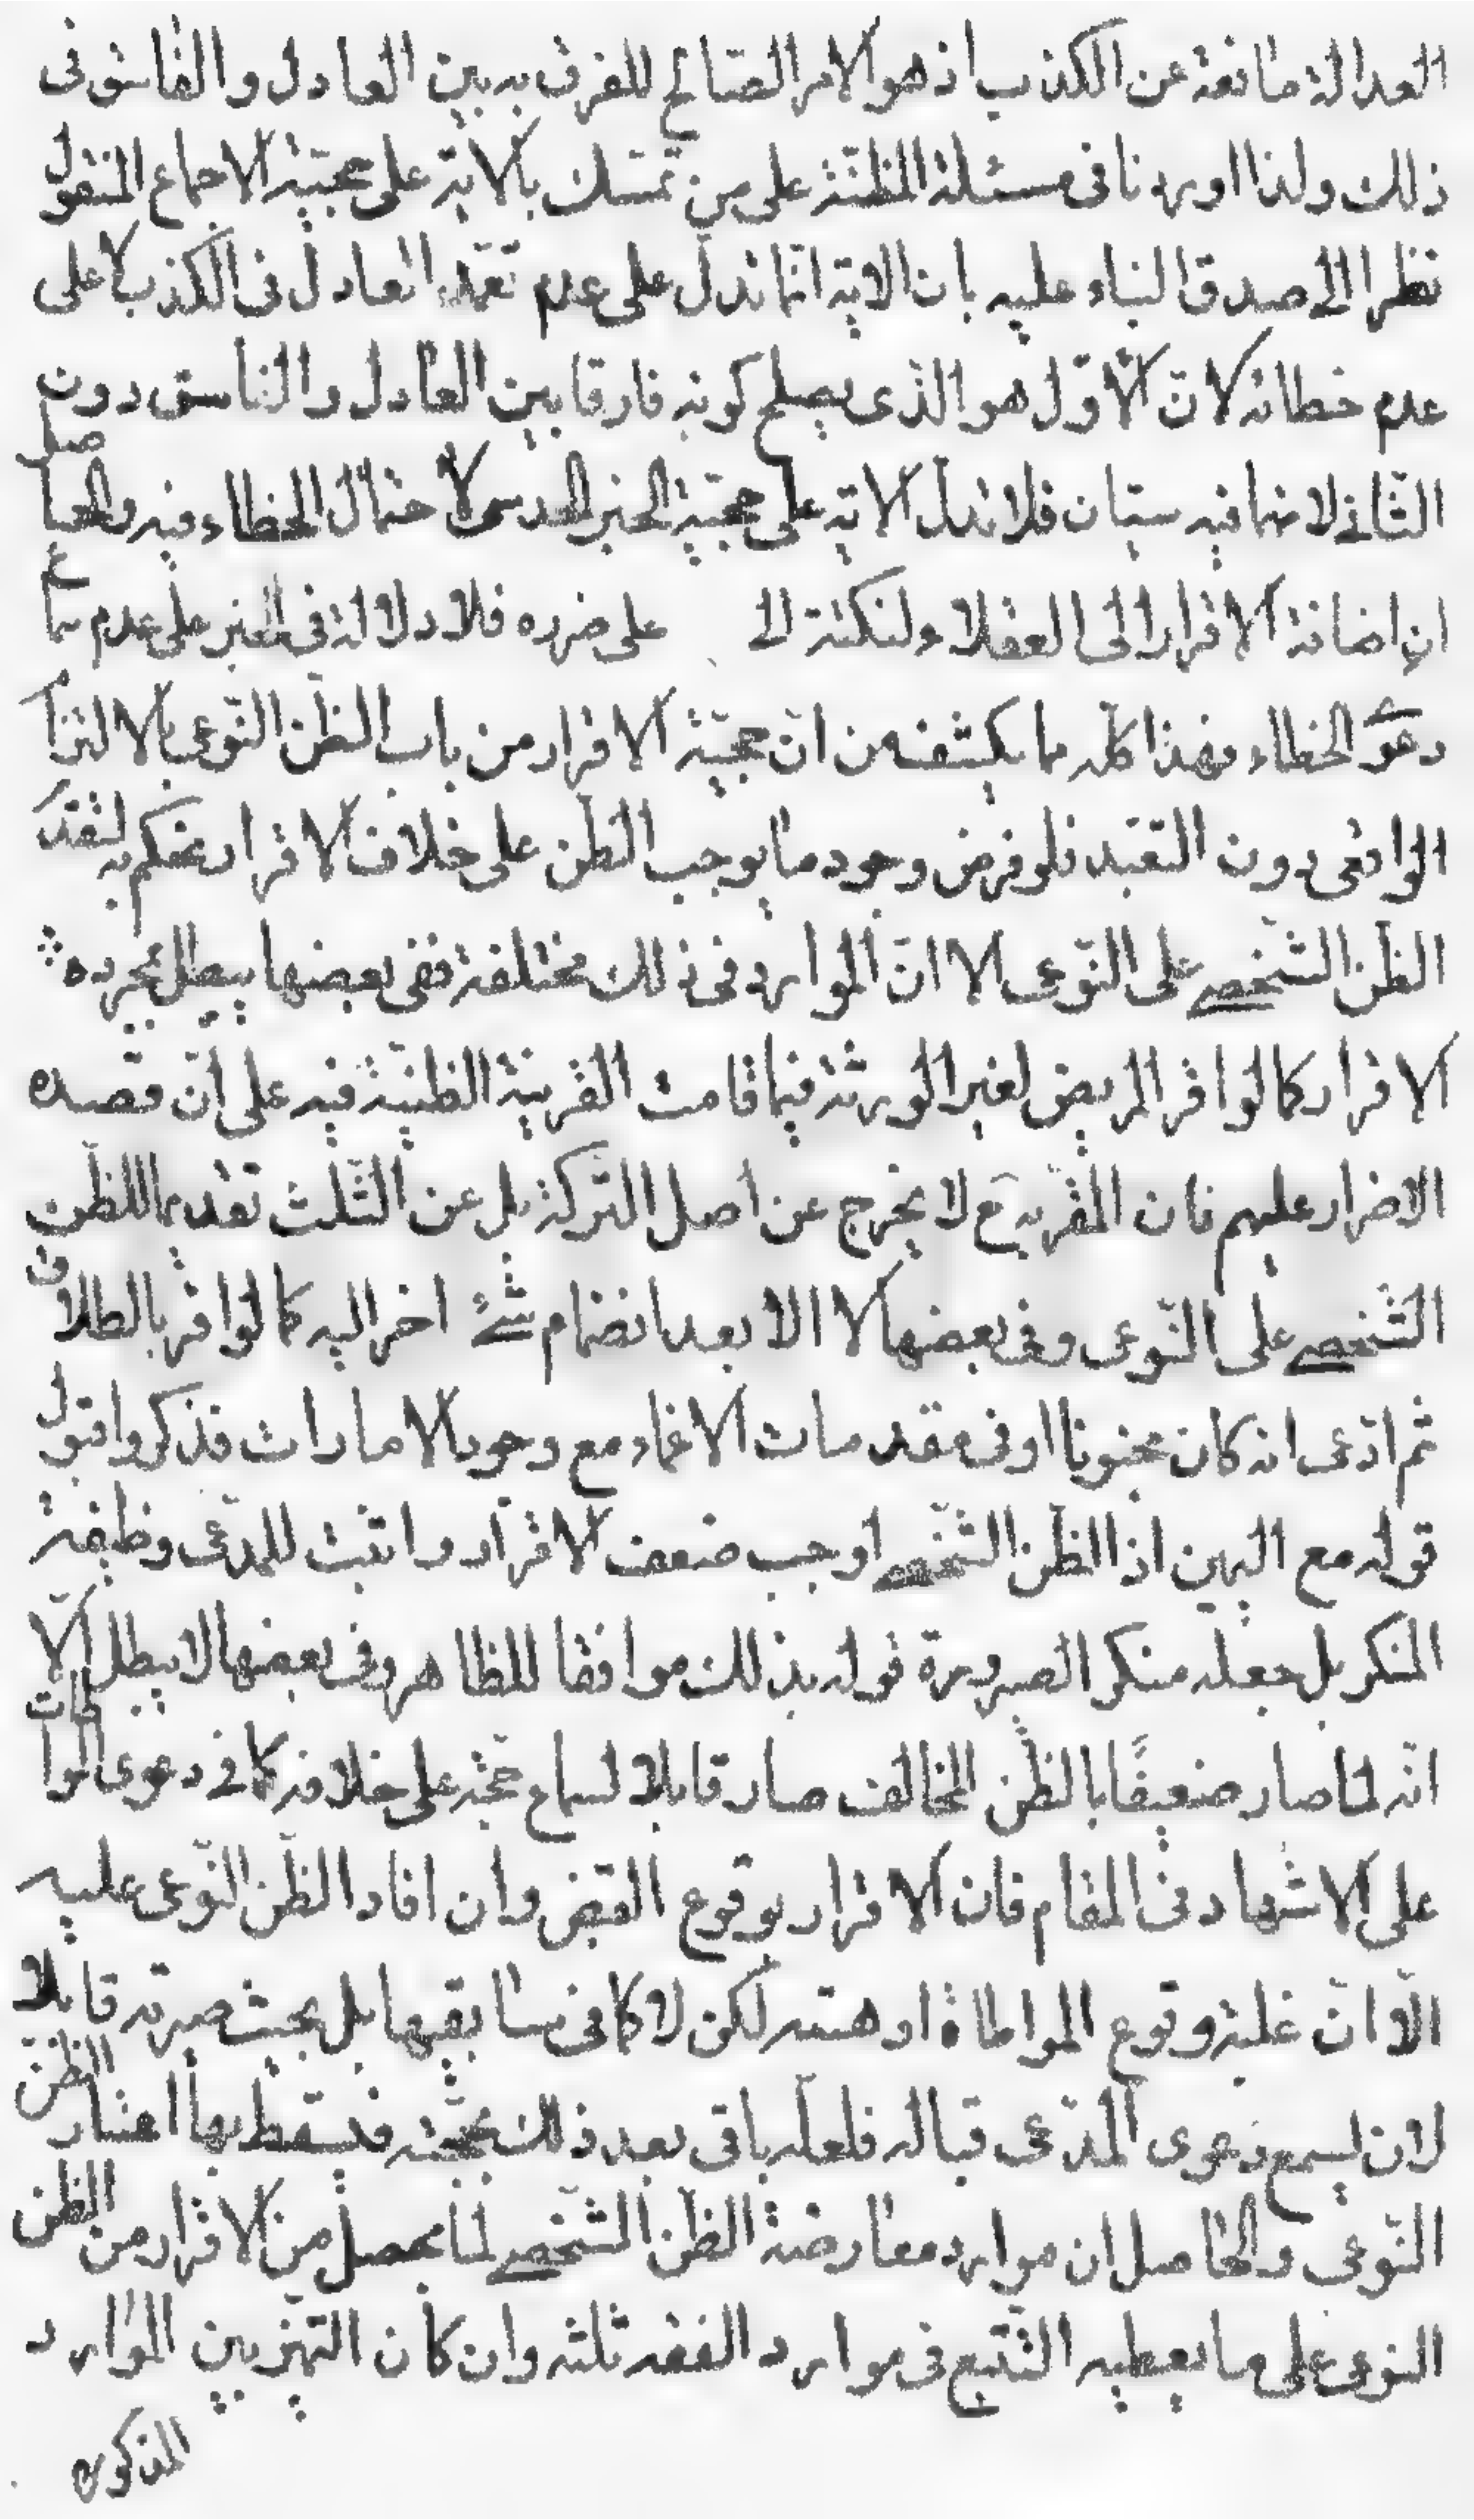 العدالة مانعة عن الكذب اذ هو الامر الصالح للفرق به بين العادل والفاسق فى
ذلك ولذا اوردنا فى مسئلة المظنّة على من تمسّك بالاية على حجيّة الاجماع المنقول
نظرا الى صدق النباء عليه بان الاية انّما تدلّ على عدم تعمّد العادل فى الكذب لا على
عدم خطائه لانّ الاوّل هو الّذى يصلح كونه فارقا بين العادل والفاسق دون
الثّانى لانهما فيه سيّان فلا تدلّ الاية على حجيّة الخبر الحدسى لاحتمال الخطاء فيه والحاصل
ان اضافة الاقرار الى العقلاء ولنكتة لا على ضرره فلا دلالة فى الخبر على عدم سماع
دعوى الخطاء فهذا كلّه مما يكشف من انّ حجيّة الاقرار من باب الظّن النّوعى بالالتزام
الواقعى دون التعبّد فلو فرض وجود ما يوجب الظّن على خلاف الاقرار يحكم به لتقدّم
الظّن الشّخصى على النّوعى الا انّ الموارد فى ذلك مختلفة ففى بعضها يبطل بمجرده
الاقرار كما لو اقر المريض لغير الورثة فيما قامت القرينة الظنيّة فيه على انّ قصده
الاضرار عليهم فان المقرّ به ح لا يخرج عن اصل التركة بل عن الثّلث تقديما للظّن
الشّخصى على النّوعى وفى بعضها لا الا بعد انضمام شئ اخر اليه كما لو اقر بالطلاق
ثم ادّعى انه كان مجنونا او فى مقدمات الاغماء مع وجود الامارات فذكروا قبول
قوله مع اليمين اذ الظّن الشّخصى اوجب ضعف الاقرار واثبت للمدّعى وظيفة
المنكر بل جعله منكرا لصيرورة قوله بذلك موافقا للظاهر وفى بعضها لا يبطل الّا
انّه لمّا صار ضعيفًا بالظّن المخالف صار قابلا لسماع حجّة على خلافه كما فى دعوى المواطات
على الاشهاد فى المقام فان الاقرار بوقوع القبض وان افاد الظّن النّوعى عليه
الّا انّ غلبة وقوع المواطاة اوهنته لكن لا كما فى سابقيها بل بحيث صيرته قابلا
لان يسمع دعوى المدّعى قباله فلعله ياتى بعد ذلك بحجّة فيسقط بها اعتبار الظّن
النّوعى والحاصل ان موارد معارضة الظّن الشّخصى لما يحصل من الاقرار من الظن
النوعى على ما يعطيه التّتبع فى موارد الفقه ثلثة وان كان التميز بين الموارد
المذكورة